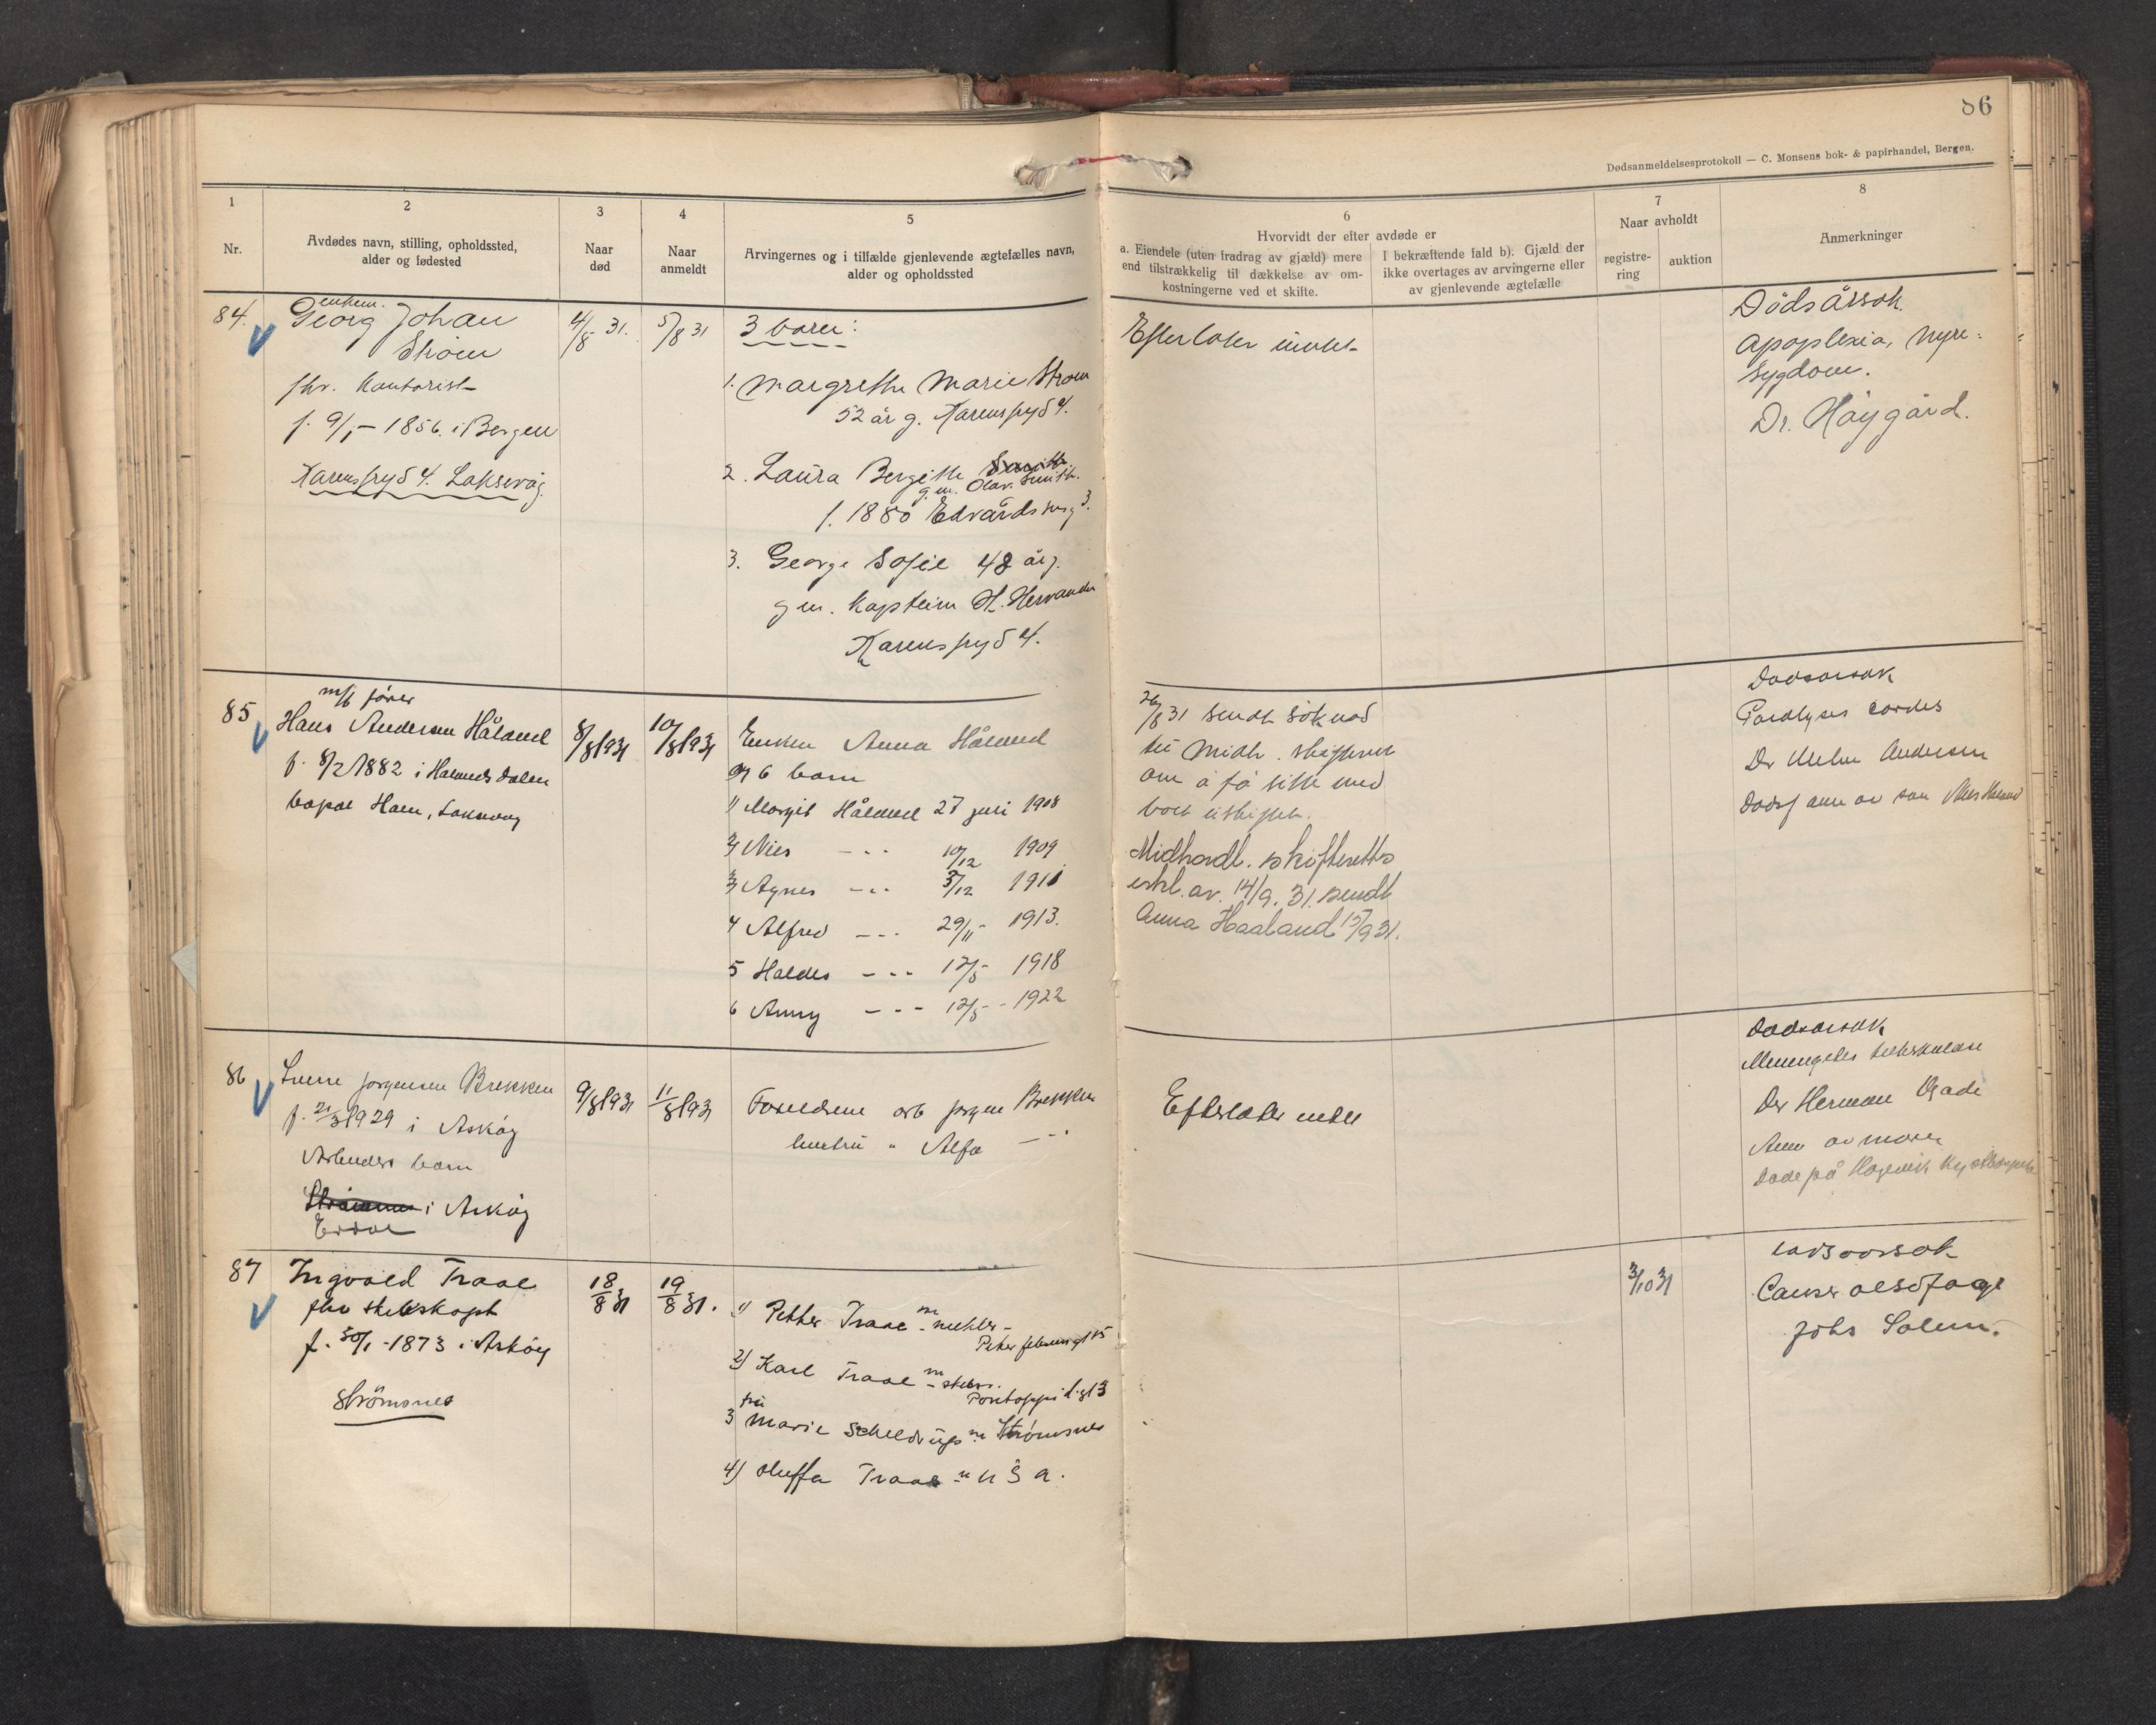 86
Dødsanmeldelsesprotokoll — C. Monsens bok- & papirhandel, Bergen.
1
Nr.
2
Avdødes navn, stilling, opholdssted,
alder og fødested
3
Naar
død
4
Naar
anmeldt
5
Arvingernes og i tilfælde gjenlevende ægtefælles navn,
alder og opholdssted
6
Hvorvidt der efter avdøde er
a. Eiendele (uten fradrag av gjæld) mere
end tilstrækkelig til dækkelse av om-
kostningerne ved et skifte.
I bekræftende fald b). Gjæld der
ikke overtages av arvingerne eller
av gjenlevende ægtefælle
7
Naar avholdt
registre-
ring
auktion
8
Anmerkninger
84.
enkem.
Georg Johan
Strøm
fhv. Kontorist
f. 9/1 - 1856. i Bergen
4. Laksevåg.
4/8 31.
5/8 31
3 barn:
1. Margrethe Marie Strøm
52 år g. 4.
2. Laura Bergitte Smith
g.m. Olav Smith.
f. 1880 Edvardsveg 3.
3. George Sofie 48 år g.
g.m. kaptein H.
4.
Efterlater intet
Dödsårsak.
Apoplexia, Nyre-
sygdom.
Dr. Høygård.
85
m/b fører
Hans Andersen Håland
f. 8/2 1882 i Halandsdalen
bopæl Laksevaag
8/8 1931
10/8 1931
Enken Anna Håland
og 6 barn
1) Margit Håland 27 juni 1908
2) Nils - - - 10/12 1909
3) Agnes - - - 3/12 1911
4 Alfred - - - 29/11 - 1913.
5 Haldis - - - 12/5 1918
6 Anny - - - 12/5 - 1922
26/8 31 sendt söknad
til Midh. skifterett
om å få sitte med
boet uskiftet.
Midhordl. skifteretts
erkl. av. 14/9. 31. sendt
Anna Haaland 15/9 31.
Dødsårsak
Paralyses cordis
Dr Andersen
Dødsf anm av søn Nils Håland
86
Sverre Jørgensen Brekken
f. 21/3 1929 i Askøy
Arbeiders barn
i Askøy
Erdal
9/8 1931
11/8 1931
Foreldrene arb Jørgen Brekken
hustru " Alfa - " -
Efterlater intet
Dødsårsak
Meningitis tuberkuløse
Dr Herman Gade
Anm av moren
Døde på Hagevik Kysthospital
87
Ingvald Traae
fhv skibskapt
f. 30/1 - 1873 i Askøy
Strömsnes
18/8 31
19/8 31.
1) Petter Traae
2) Karl Traae
fru
3 Marie Scheldrup Strømsnes
4) Traae U S A.
3/10 31
Dødsårsak
Cancer oesofage
Johs Solem.